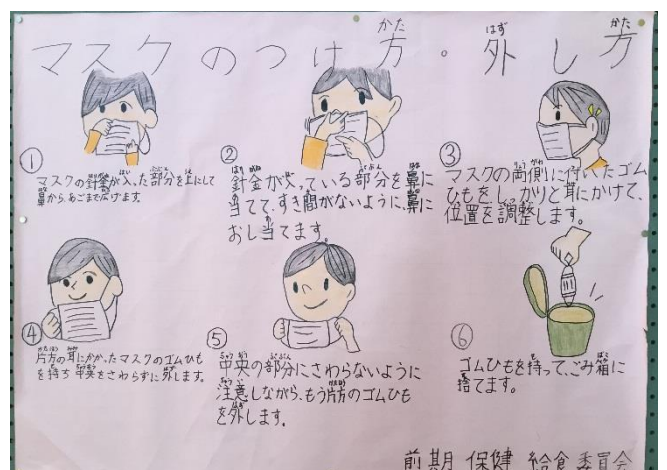 マスクのつけ方・外し方
①
マスクの針金が入った部分を上にして
鼻から、あごまで広げます。
②
針金が入っている部分を鼻に
当てて、すき間がないように、鼻に
おし当てます
③
マスクの両側に付いたゴム
ひもをしっかりと耳にかけて、
位置を調整します。
④
片方の耳にかかったマスクのゴムひも
を持ち 中央をさわらずに外します。
⑤
中央の部分にさわらないように
注意しながら、もう片方のゴムひも
を外します。
⑥
ゴムひもを持って、ごみ箱に
捨てます。
前期 保健 給食 委員会